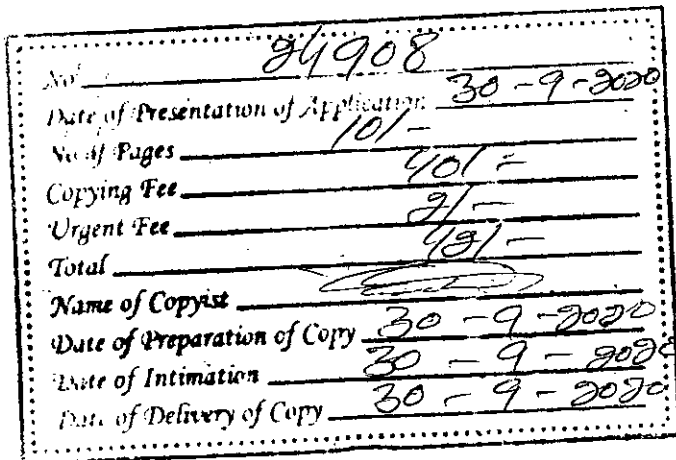 No. 24908
Date of Presentation of Application 30-9-2020
No of Pages 10/-
Copying Fee 40/=
Urgent Fee 2/-
Total 42/-
Name of Copyist
Date of Preparation of Copy 30-9-2020
Date of Intimation 30-9-2020
Date of Delivery of Copy 30-9-2020